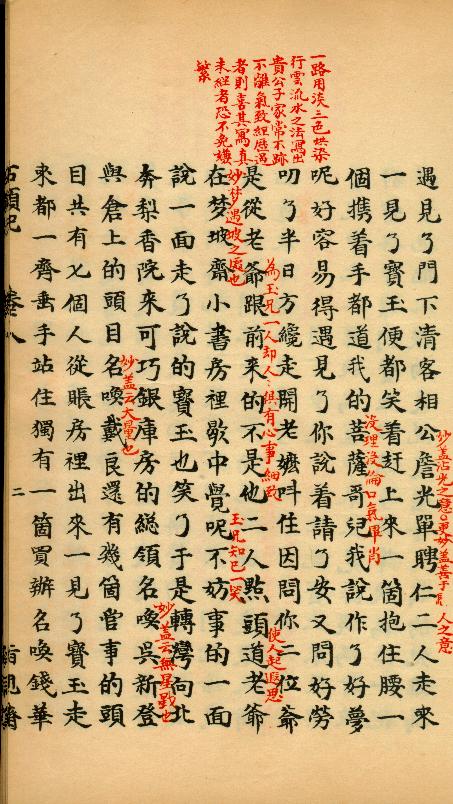 一路用淡三色烘染
行雲流水之法寫出
貴公子家常不跡
不離氣致經歷過
者則喜其寫真
未經者恐不免嫌
繁
遇見了門下清客相公詹光單聘仁二人走來
妙盖沾光之意
更妙盖善于人之意
一見了寶玉便都笑着赶上來一箇抱住腰一
個携着手都道我的菩薩哥兒我說作了好夢
没理没倫口氣畢肖
呢好容易得遇見了你說着請了安又問好勞
叨了半日方纔走開老嬷叫住因問你二位爺
為玉兄一人却人〻俱有心事細致
是從老爺跟前來的不是他二人㸃頭道老爺
使人起遐思
在梦坡齋小書房裡歇中覺呢不妨事的一面
妙梦遇坡之處也
說一面走了說的寶玉也笑了于是轉彎向北
玉兄知己一笑
奔梨香院來可巧銀庫房的総領名喚吳新登
妙盖云無星戥也
與倉上的頭目名喚戴良還有幾箇管事的頭
妙盖云大量也
目共有七個人從賬房裡出來一見了寶玉走
來都一齊垂手站住獨有一箇買辦名喚錢華
石頭記 卷八 二 脂硯齋